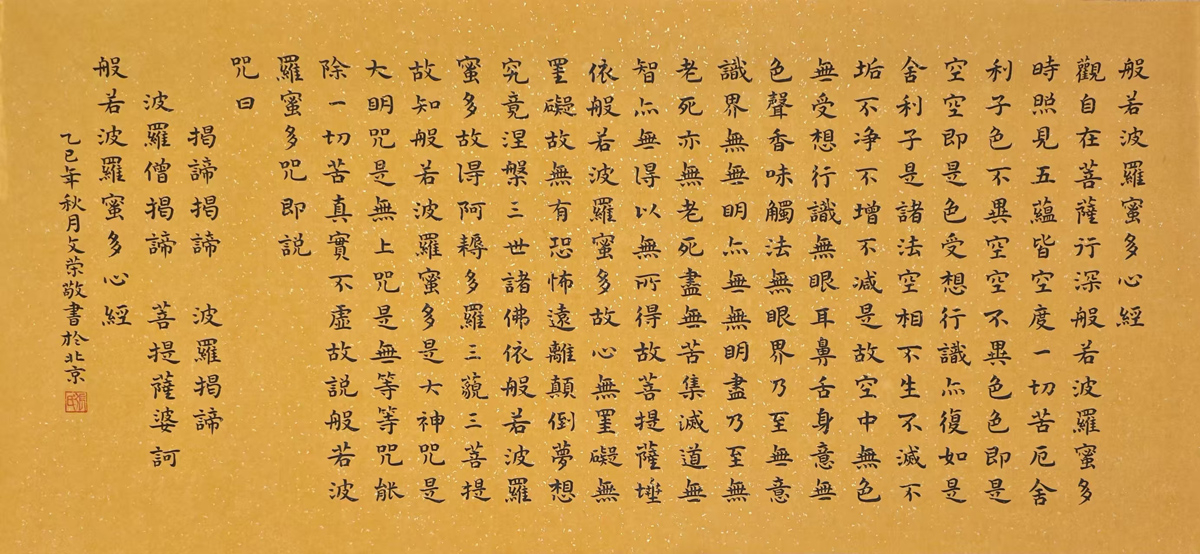 般若波羅蜜多心經
觀自在菩薩行深般若波羅蜜多
時照見五蘊皆空度一切苦厄舍
利子色不異空空不異色色即是
空空即是色受想行識亦復如是
舍利子是諸法空相不生不滅不
垢不净不增不减是故空中無色
無受想行識無眼耳鼻舌身意無
色聲香味觸法無眼界乃至無意
識界無無明亦無無明盡乃至無
老死亦無老死盡無苦集滅道無
智亦無得以無所得故菩提薩埵
依般若波羅蜜多故心無罣礙無
罣礙故無有恐怖遠離顛倒夢想
究竟涅槃三世諸佛依般若波羅
蜜多故得阿耨多羅三藐三菩提
故知般若波羅蜜多是大神咒是
大明咒是無上咒是無等等咒能
除一切苦真實不虛故説般若波
羅蜜多咒即説
咒曰
揭諦揭諦 波羅揭諦
波羅僧揭諦 菩提薩婆訶
般若波羅蜜多心經
乙巳年秋月文荣敬書於北京